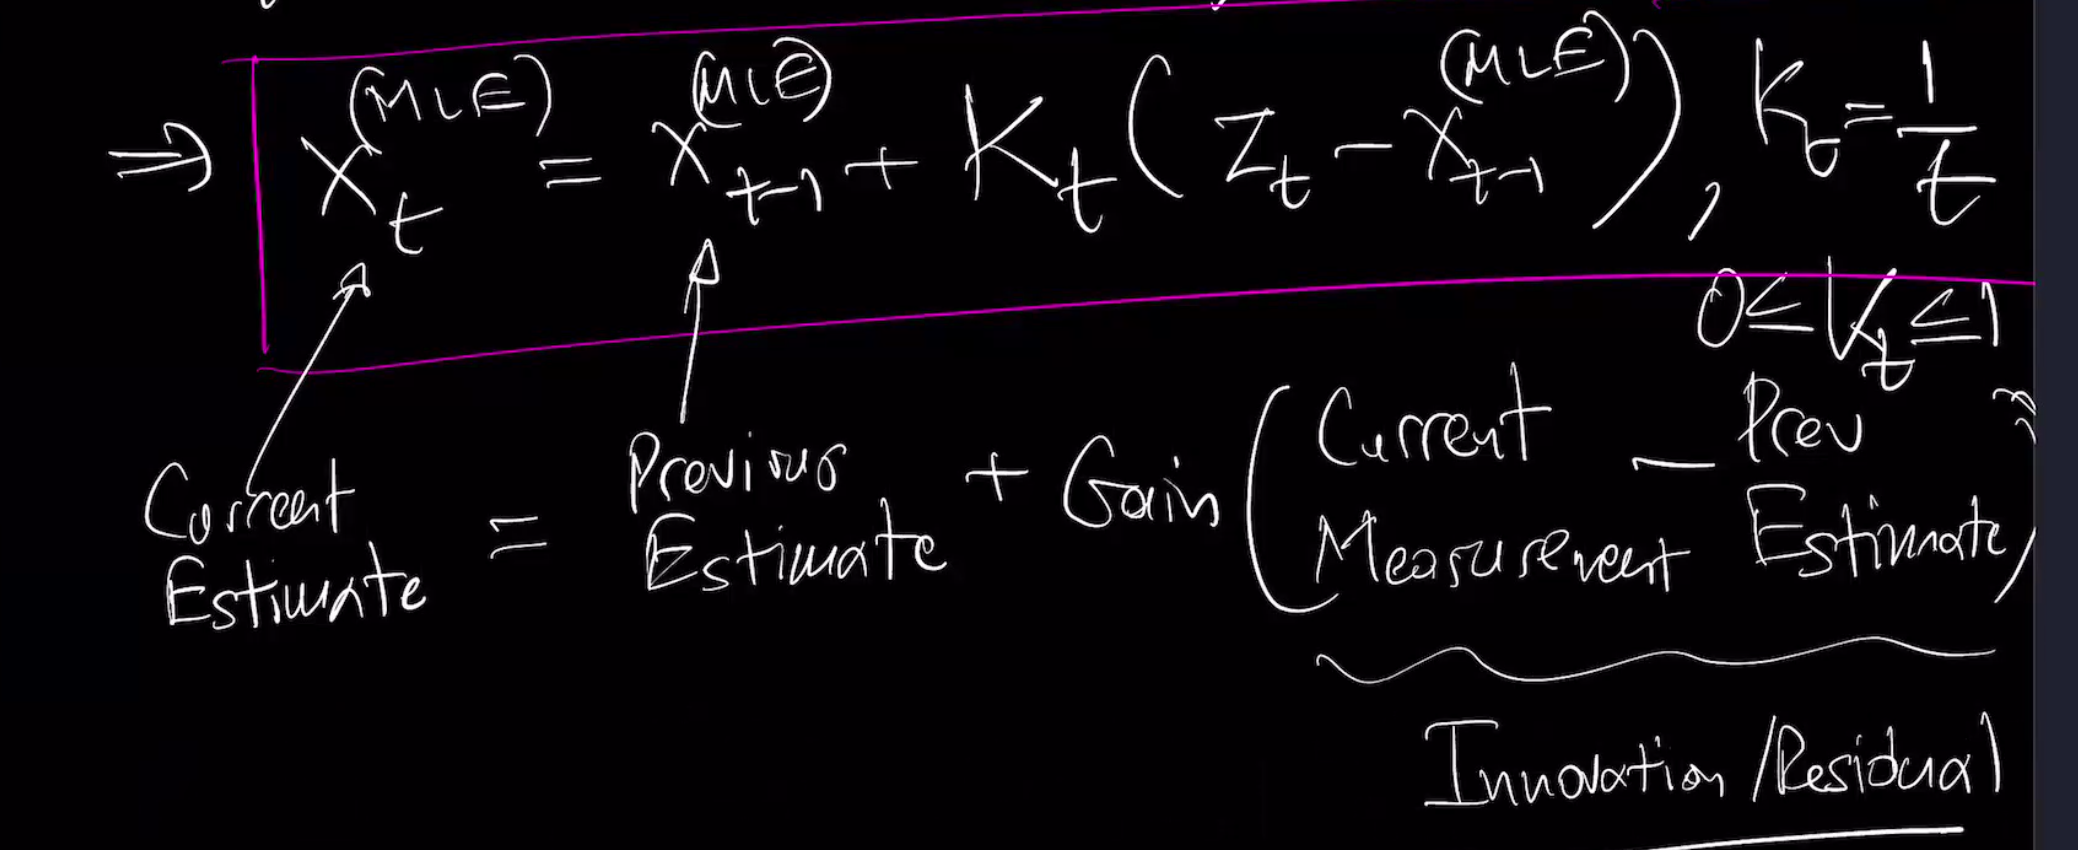 ⇒ x_t^(MLE) = x_{t-1}^(MLE) + K_t ( z_t - x_{t-1}^(MLE) ) , K_t = 1/t
0 ≤ K_t ≤ 1
Current Estimate = Previous Estimate + Gain ( Current Measurement - Prev Estimate )
Innovation / Residual